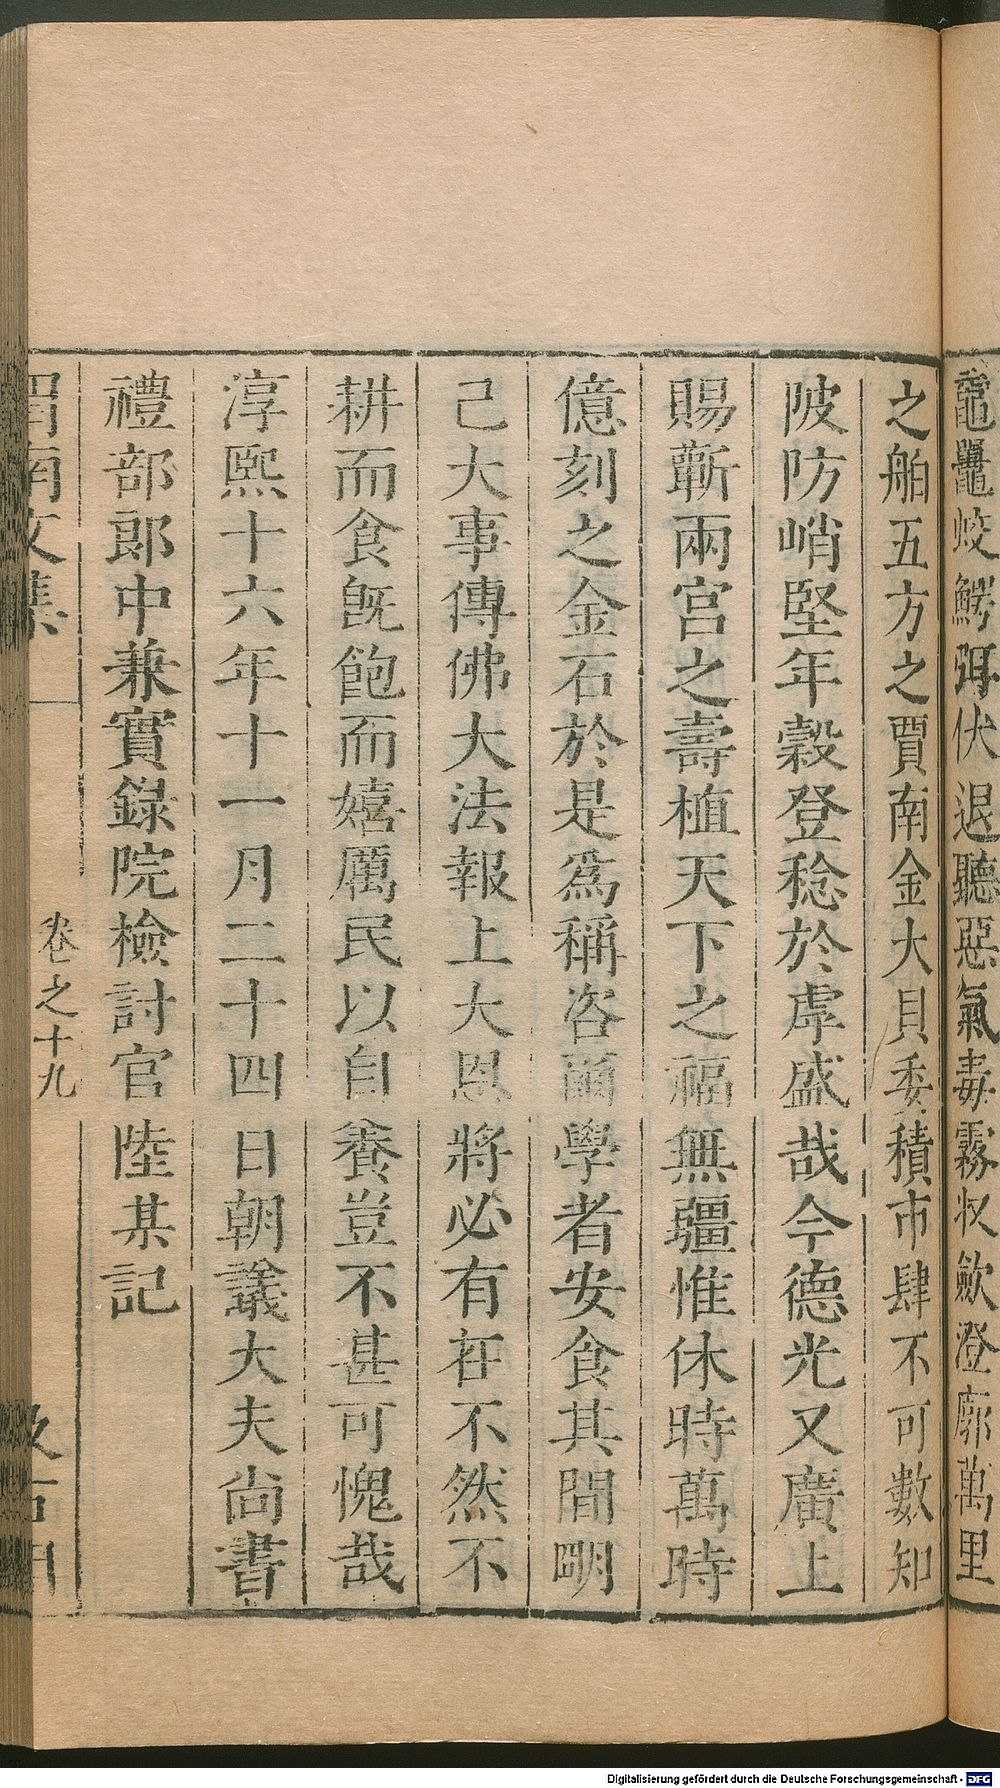 黿鼉蛟鰐弭伏退聽惡氣毒霧收歛澄廓萬里
之舶五方之賈南金大貝委積市肆不可數知
陂防峭堅年穀登稔於虖盛哉今德光又廣上
賜蘄兩宮之壽植天下之福無疆惟休時萬時
億刻之金石於是爲稱咨爾學者安食其間明
己大事傳佛大法報上大恩將必有在不然不
耕而食旣飽而嬉厲民以自養豈不甚可愧哉
淳熙十六年十一月二十四日朝議大夫尚書
禮部郎中兼實錄院檢討官陸某記
渭南文集 卷之十九 汲古閣
Digitalisierung gefördert durch die Deutsche Forschungsgemeinschaft - DFG